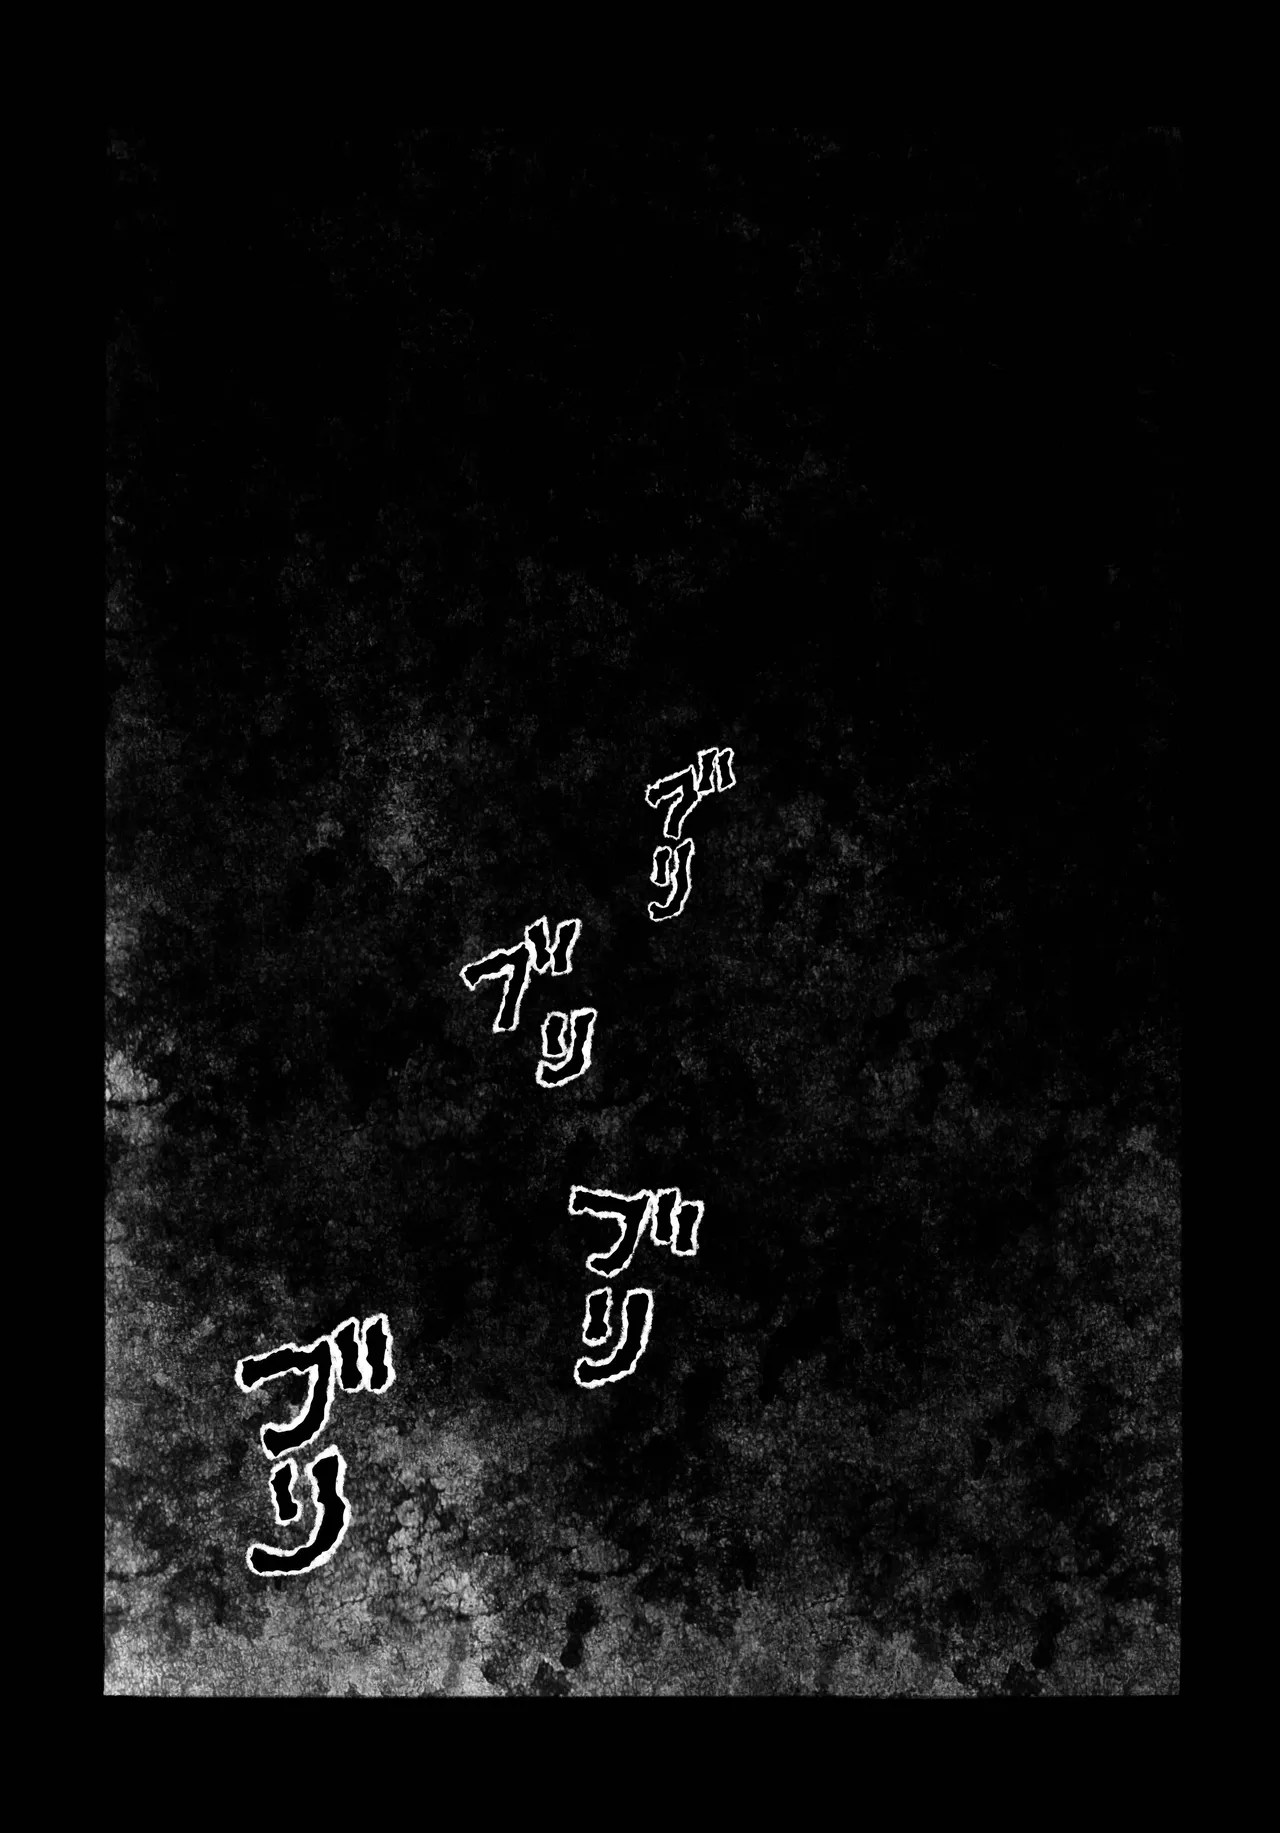 ブリ
ブリ
ブリ
ブリ